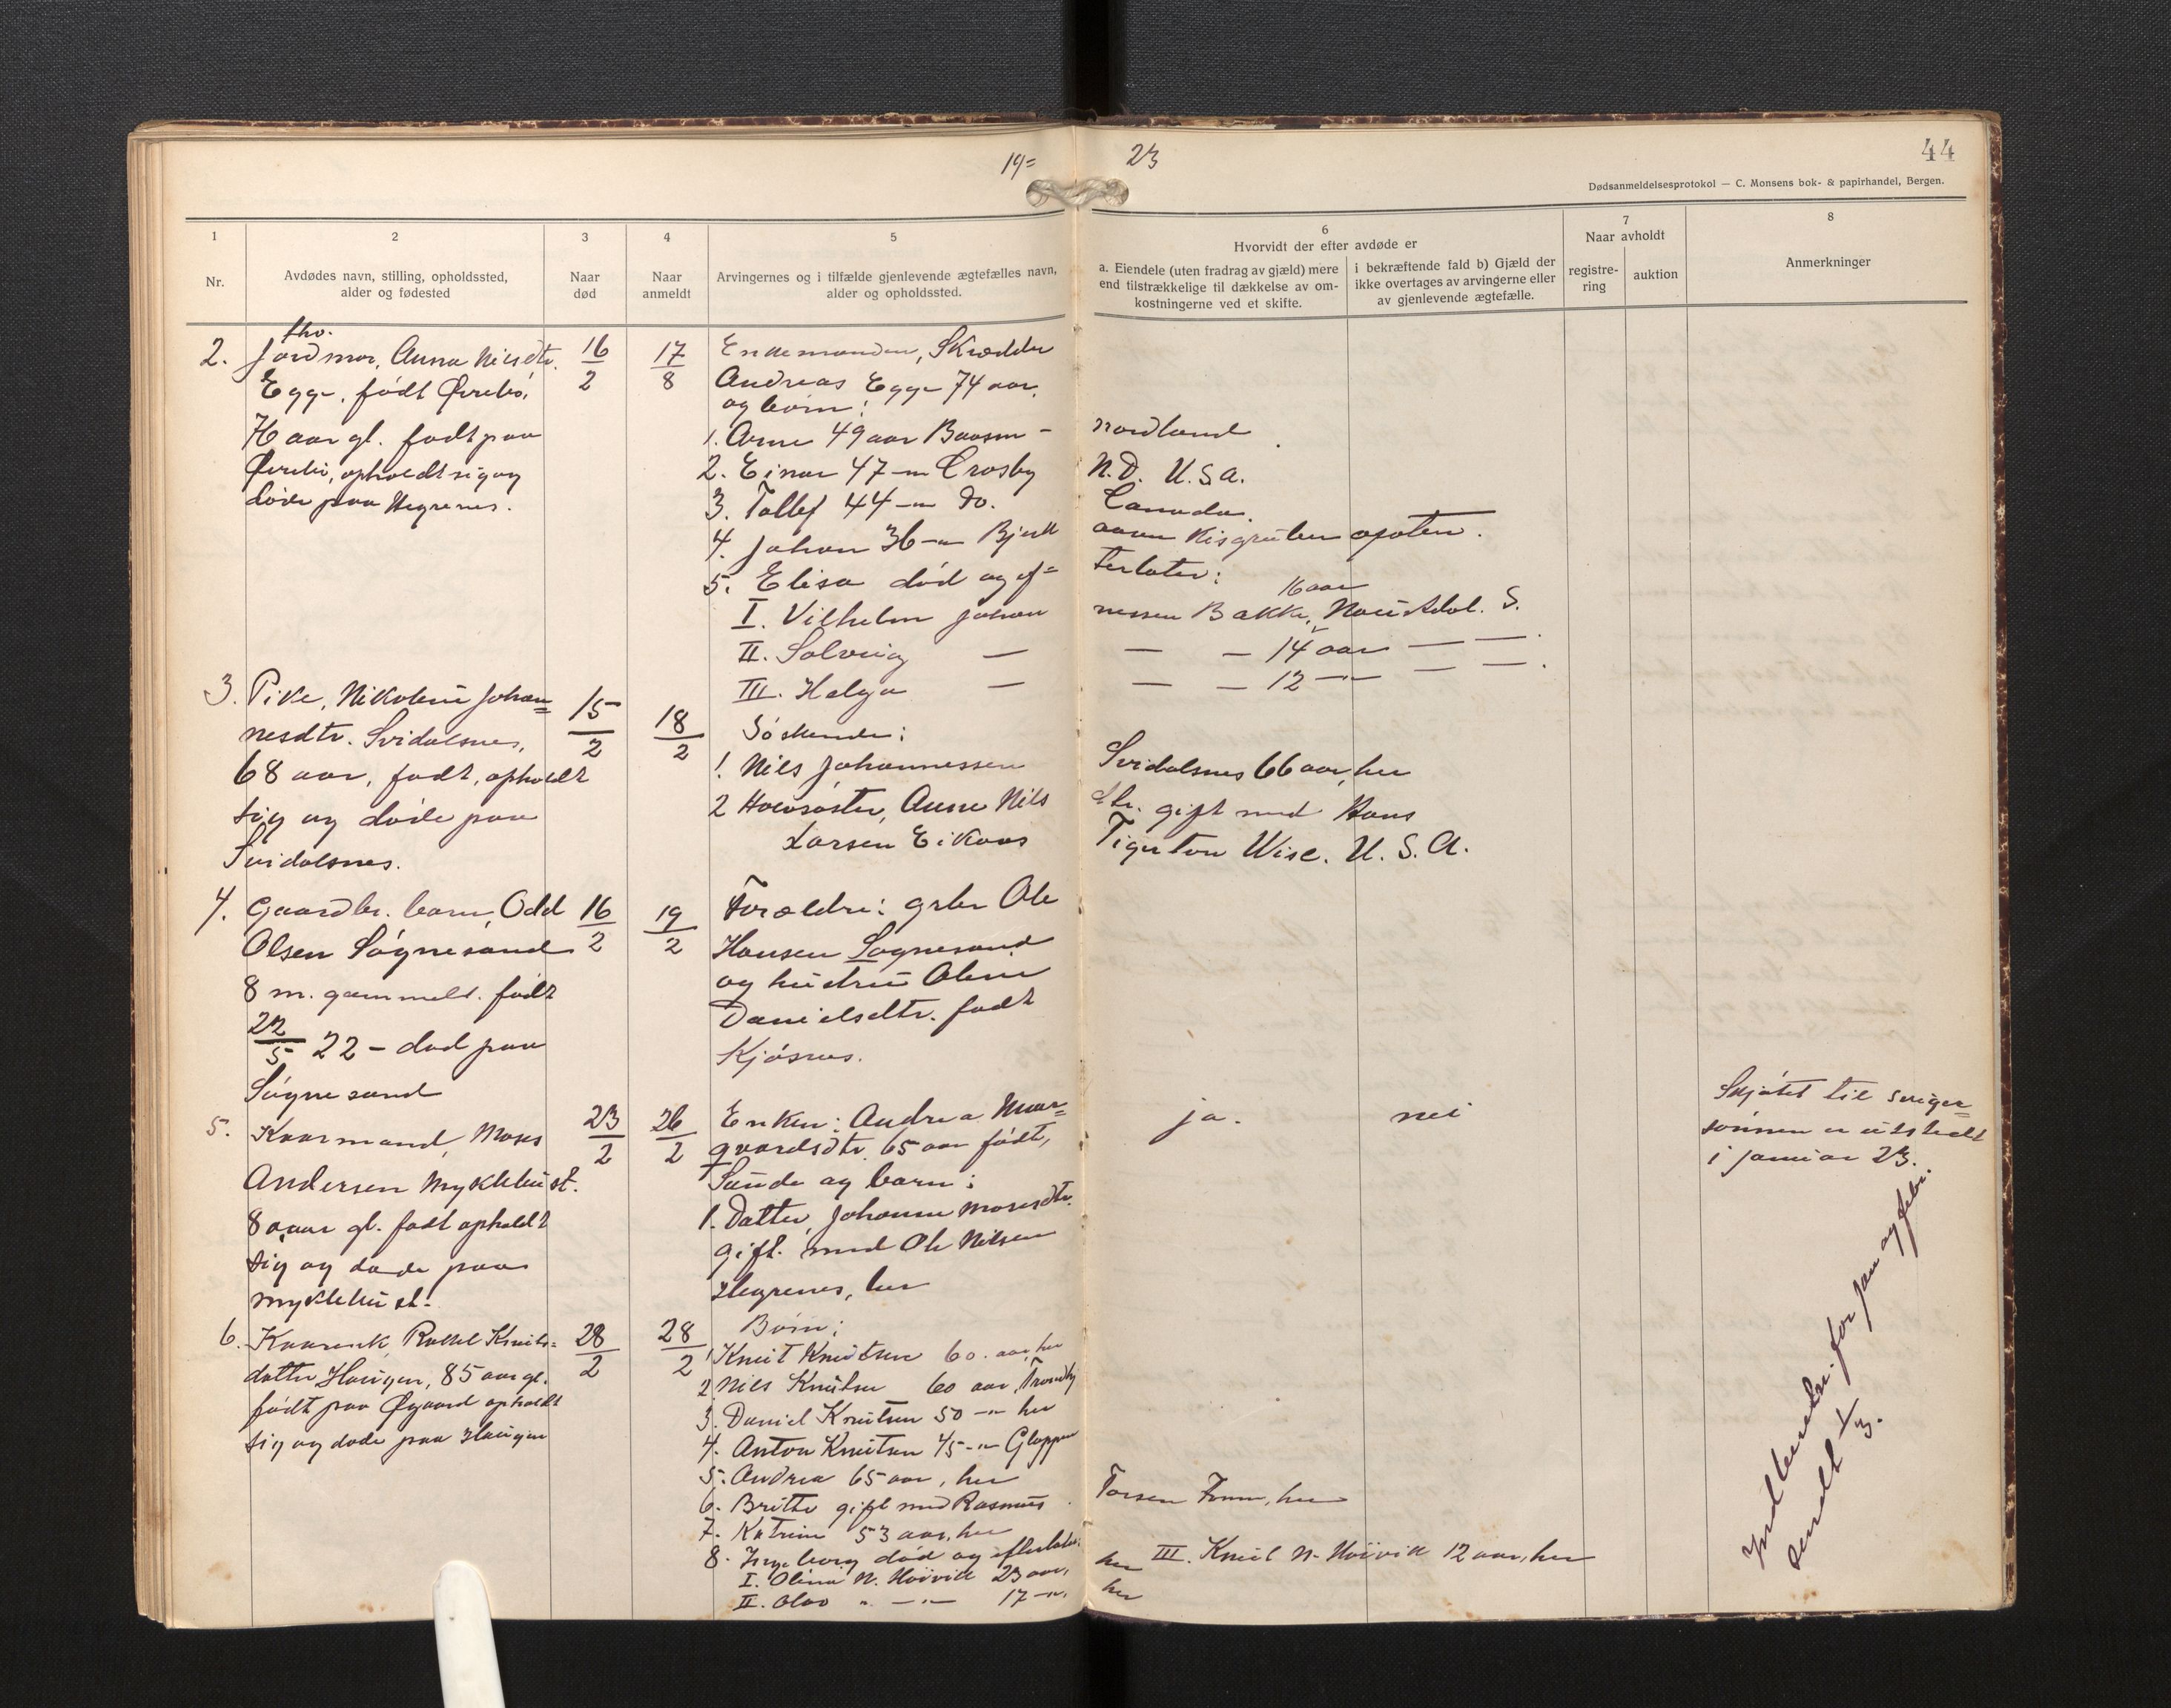 19= 23
44
Dødsanmeldelsesprotokol — C. Monsens bok- & papirhandel, Bergen.
1
Nr.
2
Avdødes navn, stilling, opholdssted,
alder og fødested
3
Naar
død
4
Naar
anmeldt
5
Arvingernes og i tilfælde gjenlevende ægtefælles navn,
alder og opholdssted.
6
Hvorvidt der efter avdøde er
a. Eiendele (uten fradrag av gjæld) mere
end tilstrækkelige til dækkelse av om-
kostningerne ved et skifte.
i bekræftende fald b) Gjæld der
ikke overtages av arvingerne eller
av gjenlevende ægtefælle.
7
Naar avholdt
registre-
ring
auktion
8
Anmerkninger
fhv.
2. Jordmor, Anna Nilsdtr.
Egge, født Övrebö,
76 aar gl. født paa
Övrebö, opholdt sig og
döde paa Hegrenes.
16/2
17/8
Enkemanden, Skrædder
Andreas Egge 74 aar,
og börn:
1. Arne 49 aar Baasm- nordland
2. Einar 47 -"- Crosby N.D. U.S.A.
3. Tollef 44 -"- do. Canada.
4. Johan 36 -"- Bjerk aasen Kisgruber
5. Elisa död og ef= terlater:
I. Vilhelm Johan nessen Bakke, 16 aar Naustdal. S.
II. Solveig — — — 14 aar — —.
III. Helga — — — 12 -"- — —.
3. Pike, Nikoline Johan=
nesdtr. Svidalsnes,
68 aar, født, opholdt
sig og döde paa
Svidalsnes.
15/2
18/2
Söskende:
1. Nils Johannessen Svidalsnes 66 aar, her
2 Halvsöster, Anne Nils dtr. gift med Hans
Larsen Eikaas Tigerton Wisc. U.S.A.
4. Gaardbr. barn, Odd
Olsen Sögnesand
8 m. gammelt. født
22/5 22 - död paa
Sögnesand
16/2
19/2
Forældre: grbr Ole
Hansen Sögnesand
og hustru Oline
Danielsdtr. født
Kjösnes.
5. Kaarmand, Moses
Andersen Myklebust.
80 aar gl. født opholdt
sig og döde paa
Myklebust.
23/2
26/2
Enken: Andrea Mar=
qvardsdtr. 65 aar født,
Sunde og barn:
1. Datter, Johanne Mosesdtr.
gift. med Ole Nilsen
Hegrenes, her
ja.
nei
Skjötet til sviger=
sönnen er utstedt
i januar 23.
6. Kaarenk, Rakel Knuts=
datter Haugen, 85 aar gl.
født paa Øygaard opholdt
sig og döde paa Haugen
28/2
28/2
Börn:
1 Knut Knutsen 60. aar, her
2 Nils Knutsen 60 aar,
3. Daniel Knutsen 50 -"- her
4. Anton Knutsen 45 -"- Gloppen
5. Andrea 65 aar, her
6. Brithe gift med Rasmus Torsen her
7. Katrine 53 aar, her
8. Ingeborg död og efterlater:
I. Olina N. Höivik 23 aar, her III. Knut N. Höivik 12 aar, her
II. Olav " -"- 17 -"-, her
Indberetn. for jan og febr.
sendt 1/3.